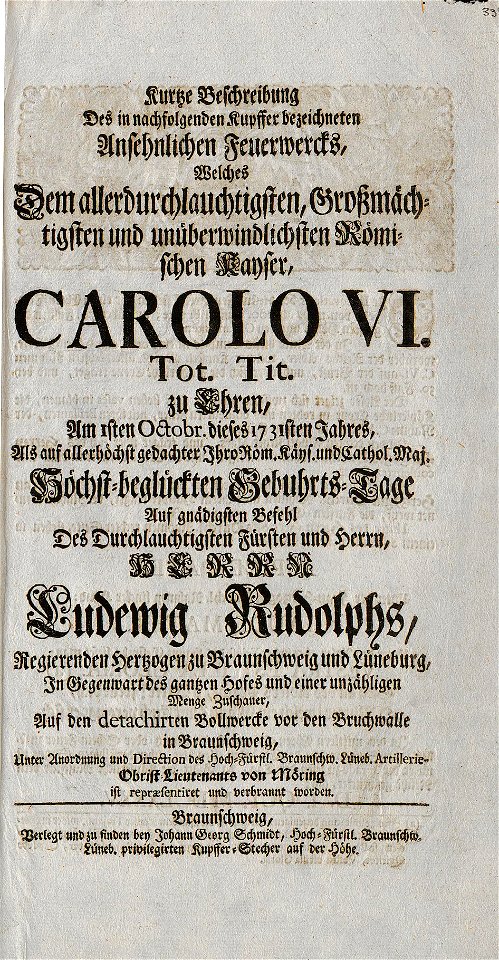 33
Kurtze Beschreibung
Des in nachfolgenden Kupffer bezeichneten
Ansehnlichen Feuerwercks,
Welches
Dem allerdurchlauchtigsten, Großmäch-
tigsten und unüberwindlichsten Römi-
schen Kayser,
CAROLO VI.
Tot. Tit.
zu Ehren,
Am 1sten Octobr. dieses 1731sten Jahres,
Als auf allerhöchst gedachter Ihro Röm. Käys. und Cathol. Maj.
Höchst-beglückten Gebuhrts-Tage
Auf gnädigsten Befehl
Des Durchlauchtigsten Fürsten und Herrn,
HERRN
Ludewig Rudolphs,
Regierenden Hertzogen zu Braunschweig und Lüneburg,
In Gegenwart des gantzen Hofes und einer unzähligen
Menge Zuschauer,
Auf den detachirten Bollwercke vor den Bruchwalle
in Braunschweig,
Unter Anordnung und Direction des Hoch-Fürstl. Braunschw. Lüneb. Artillerie-
Obrist Lieutenants von Möring
ist repræsentiret und verbrannt worden.
Braunschweig,
Verlegt und zu finden bey Johann Georg Schmidt, Hoch-Fürstl. Braunschw.
Lüneb. privilegirten Kupffer-Stecher auf der Höhe.